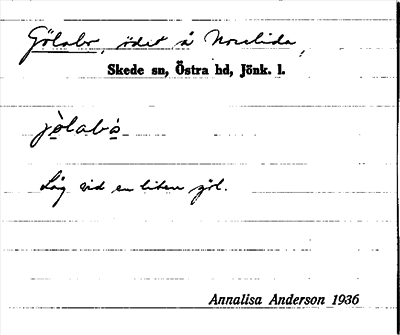 Gölabo, ödet å Norrlida,
Skede sn, Östra hd, Jönk. l.
jòlabò
Låg vid en liten göl.
Annalisa Anderson 1936